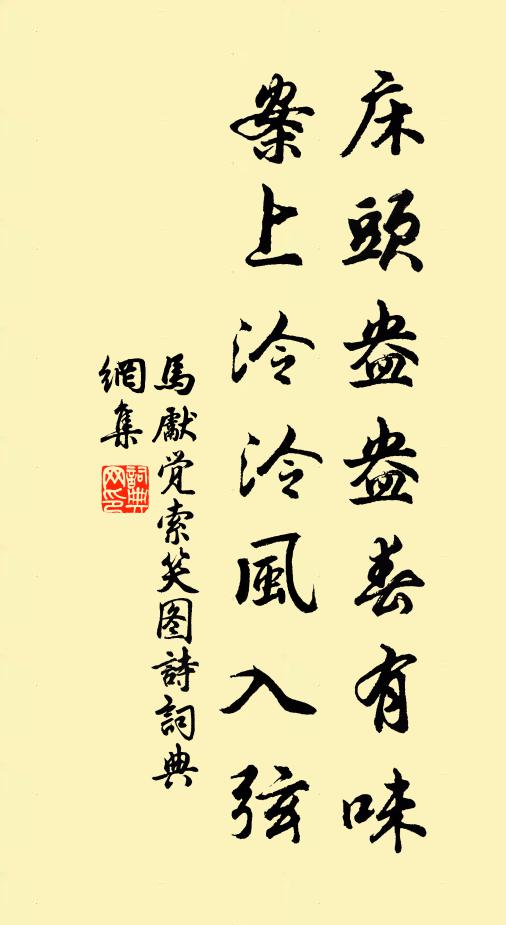 床頭盎盎春有味
案上泠泠風入弦
馬獻覚索笑图詩詞典
網集
詞典網印